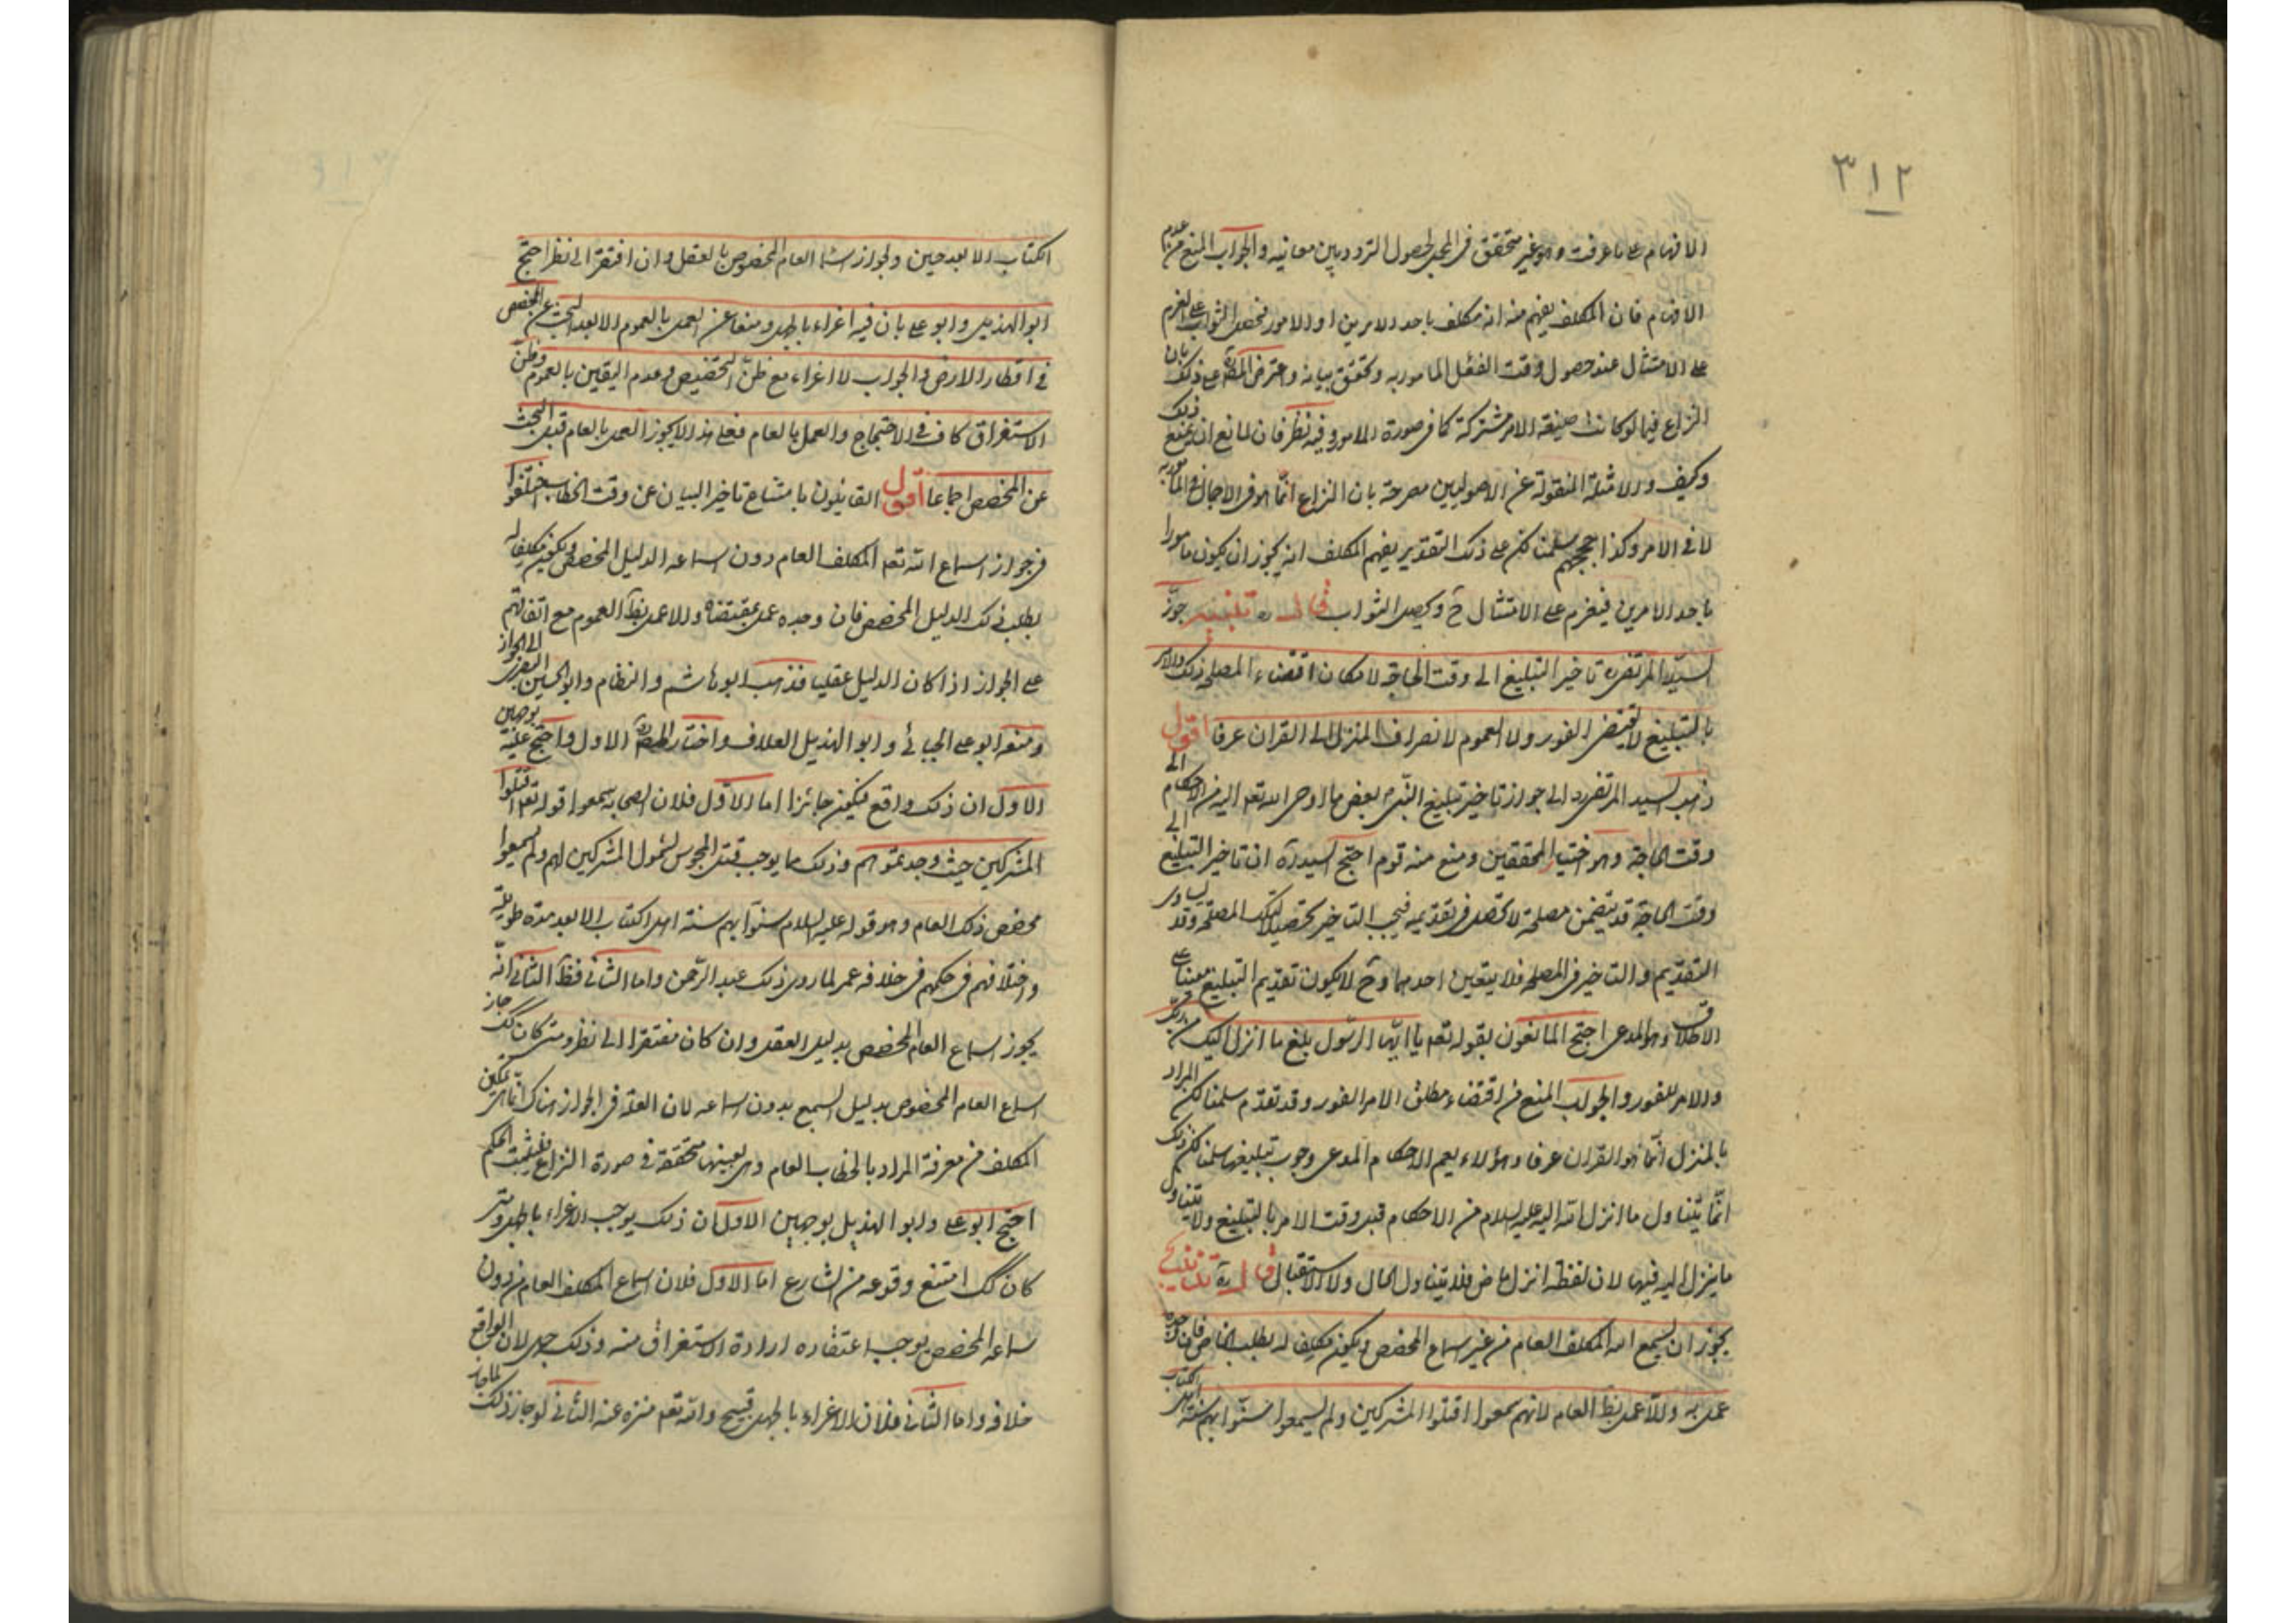 ٣١٢
الافهام على ما عرفت وهو غير متحقق في المجمل لحصول التردد بين معانيه والجواب المنع من عدم
الافهام فان المكلف يفهم منه انه مكلف باحد الامرين او الامور فيحصل الثواب على العزم
على الامتثال عند حصول وقت الفعل المامور به وتحقق بيانه واعترض المصره على ذلك بان
النزاع فيما لو كانت صيغة الامر مشتركة كما في صورة الامور وفيه نظر فان لمانع ان يمنع ذلك
وكيف والامثلة المنقولة عن الاصوليين مصرحة بان النزاع انما هو في الاجمال في المامور به
لا في الامر وكذا حججهم سلمنا لكن على ذلك التقدير يفهم المكلف انه يجوز ان يكون مامورا
باحد الامرين فيعزم على الامتثال ح ويحصل الثواب قال ره تنبيه جوز
السيد المرتضى ره تاخير التبليغ الى وقت الحاجة لامكان اقتضاء المصلحة ذلك والامر
بالتبليغ لا يقتضى الفور ولا العموم لانصراف المنزل الى القران عرفا اقول
ذهب السيد المرتضى ره الى جواز تاخير تبليغ النبي بعض ما اوحى الله تعه اليه من الاحكام الى
وقت الحاجة وهو اختيار المحققين ومنع منه قوم احتج السيد ره ان تاخير التبليغ الى
وقت الحاجة قد يتضمن مصلحة لا تحصل في تقديمه فيجب التاخير تحصيلا لتلك المصلحة وقد يساوى
التقديم والتاخير في المصلحة فلا يتعين احدهما وح لا يكون تقديم التبليغ معينا على
الاطلاق وهو المدعى احتج المانعون بقوله تعه يا ايها الرسول بلغ ما انزل اليك من ربك
والامر للفور والجواب المنع من اقتضاء مطلق الامر الفور وقد تقدم سلمنا لكن المراد
بالمنزل انما هو القران عرفا وهؤلاء يعم الاحكام المدعى وجوب تبليغها سلمنا لكن ذلك
انما يتناول ما انزل الله اليه عليه السلام من الاحكام قبل وقت الامر بالتبليغ ولا يتناول
ما ينزل اليه فيها لان لفظة انزل ماض فلا يتناول الحال ولا الاستقبال قال ره تذنيب
يجوز ان يسمع الله المكلف العام من غير اسماع المخصص ويكون مكلفا له بطلب الخاص فان وجده
عمل به والا عمل بظ العام لانهم سمعوا اقتلوا المشركين ولم يسمعوا سنوا بهم سنة اهل الكتاب
الكتاب الا بعد حين ولجواز اسماع العام المخصوص بالعقل وان افتقر الى نظر احتج
ابو الهذيل وابو على بان فيه اغراء بالجهل ومنعا عن العمل بالعموم الا بعد البحث عن المخصص
في اقطار الارض والجواب لا اغراء مع ظن التخصيص وعدم اليقين بالعموم وظن
الاستغراق كاف في الاحتجاج والعمل بالعام فعلى هذا لا يجوز العمل بالعام قبل البحث
عن المخصص اجماعا اقول القائلون بامتناع تاخير البيان عن وقت الخطاب اختلفوا
في جواز اسماع الله تعه المكلف العام دون اسماعه الدليل المخصص ويكون مكلفا له
بطلب ذلك الدليل المخصص فان وجده عمل بمقتضاه والا عمل بظ العموم مع اتفاقهم
على الجواز اذا كان الدليل عقليا فذهب ابو هاشم والنظام وابو الحسين البصرى الى الجواز
ومنعه ابو على الجبائى وابو الهذيل العلاف واختار المصره الاول واحتج عليه بوجهين
الاول ان ذلك واقع فيكون جائزا اما الاول فلان الصحابة سمعوا قوله تعه اقتلوا
المشركين حيث وجدتموهم وذلك مما يوجب قتل المجوس لشمول المشركين لهم ولم يسمعوا
مخصص ذلك العام وهو قوله عليه السلام سنوا بهم سنة اهل الكتاب الا بعد مدة طويلة
واختلافهم في حكمهم في خلافة عمر لما روى ذلك عبد الرحمن واما الثانى فظ الثانى انه
يجوز اسماع العام المخصص بدليل العقل وان كان مفتقرا الى نظر ومتى كان كك جاز
اسماع العام المخصوص بدليل السمع بدون اسماعه لان العلة في الجواز هناك انما هى تمكين
المكلف من معرفة المراد بالخطاب العام وهى بعينها متحققة في صورة النزاع فيثبت الحكم
احتج ابو على وابو الهذيل بوجهين الاول ان ذلك يوجب الاغراء بالجهل ومتى
كان كك امتنع وقوعه من الشارع اما الاول فلان اسماع المكلف العام من دون
اسماعه المخصص يوجب اعتقاده ارادة الاستغراق منه وذلك جهل لان الواقع
خلافه واما الثانى فلان الاغراء بالجهل قبيح والله تعه منزه عنه الثانى لو جاز ذلك لما جاز